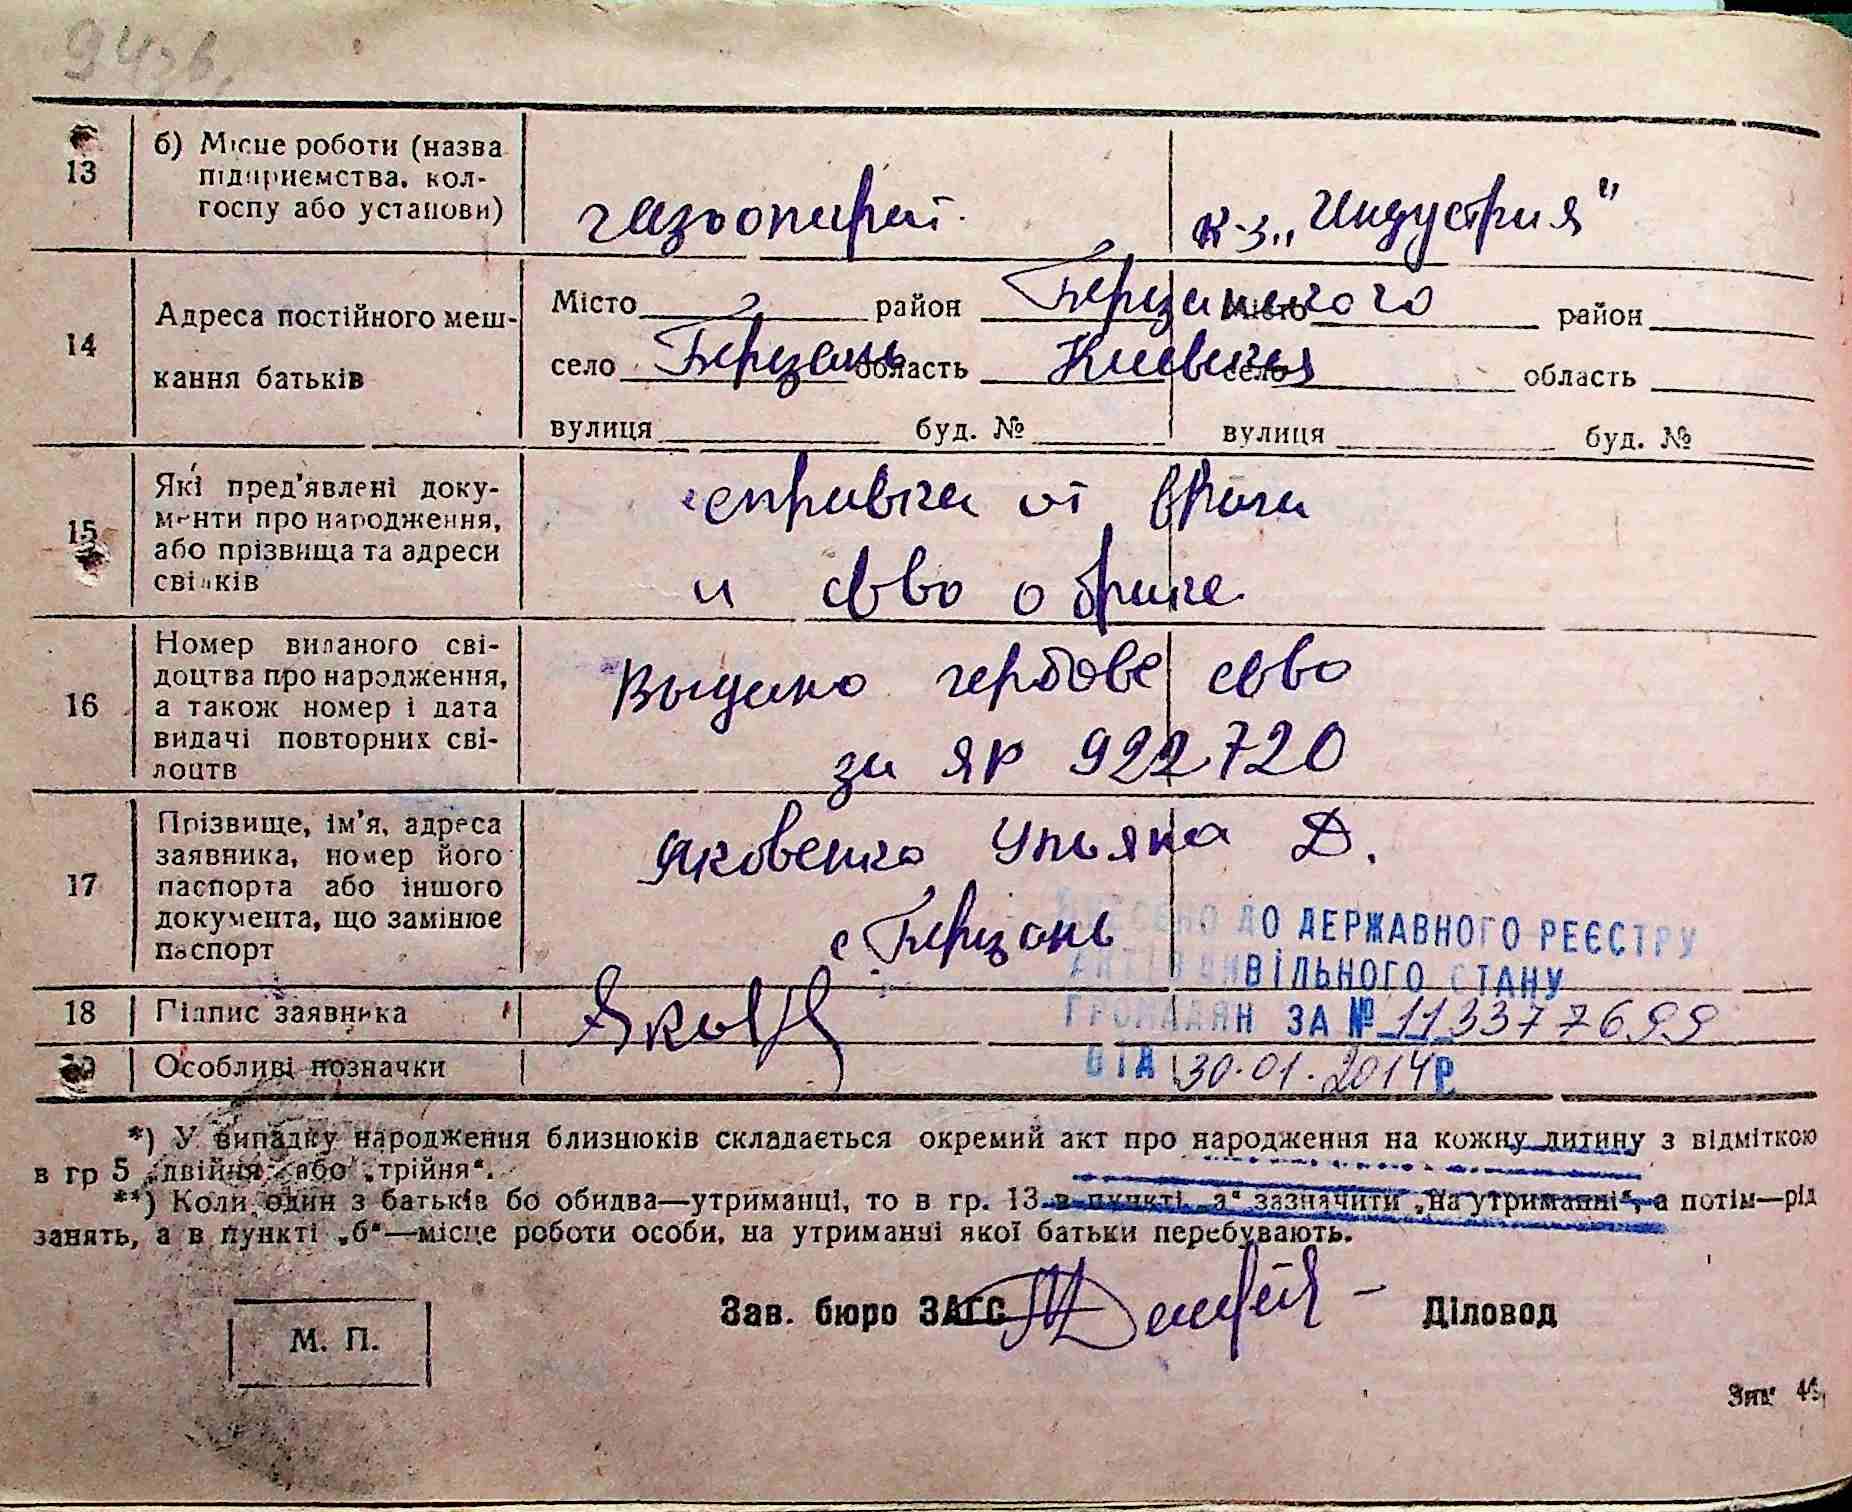 94зв.
13 б) Місце роботи (назва
підприємства, кол-
госпу або установи)
газоапарат. к-з „Индустрия"
14 Адреса постійного меш-
кання батьків
Місто район Місто район
село Березань область Киевская село область
вулиця буд. № вулиця буд. №
15 Які пред'явлені доку-
менти про народження,
або прізвища та адреси
свідків
справка от врача
и св-во о браке
16 Номер виданого сві-
доцтва про народження,
а також номер і дата
видачі повторних сві-
доцтв
Выдано гербове св-во
за ЯР 922720
17 Прізвище, ім'я, адреса
заявника, номер його
паспорта або іншого
документа, що замінює
паспорт
Яковенко Ульяна Д.
с Березань
ВНЕСЕНО ДО ДЕРЖАВНОГО РЕЄСТРУ
АКТІВ ЦИВІЛЬНОГО СТАНУ
ГРОМАДЯН ЗА № 113377699
ВІД 30.01.2014 Р
18 Підпис заявника
19 Особливі позначки
*) У випадку народження близнюків складається окремий акт про народження на кожну дитину з відміткою
в гр 5 „двійня" або „трійня".
**) Коли один з батьків бо обидва—утриманці, то в гр. 13 в пункті „а" зазначити „на утриманні", а потім—рід
занять, а в пункті „б"—місце роботи особи, на утриманні якої батьки перебувають.
Зав. бюро ЗАГС Діловод
М. П.